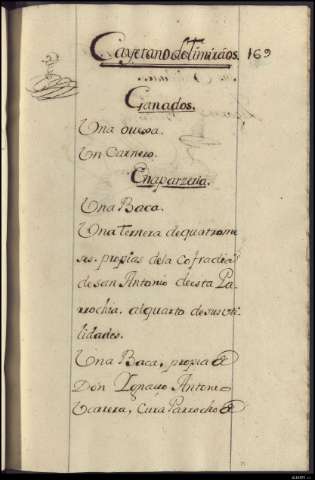 Cayetano de Timiráos. 169
Ganados.
Una oueja.
Un Carnero.
Enaparzeria.
Una Baca.
Una ternera de quatro me
ses, propias dela Cofradia
de San Antonio de esta Pa-
rrochia, alquarto de sus uti-
lidades.
Una Baca, propia
Dòn Ygnaçio Antonio
Cura Parrocho